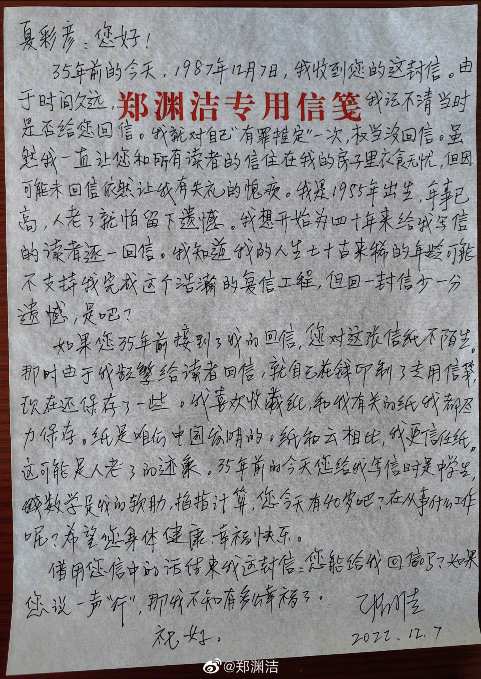 夏彩彦：您好！
35年前的今天，1987年12月7日，我收到您的这封信。由
于时间久远，郑渊洁专用信笺我记不清当时
是否给您回信。我就对自己“有罪推定”一次，权当没回信。虽
然我一直让您和所有读者的信住在我的房子里衣食无忧，但因
可能未回信依然让我有失礼的愧疚。我是1955年出生，年事已
高，人老了就怕留下遗憾。我想开始为四十年来给我写信
的读者逐一回信。我知道我的人生七十古来稀的年龄可能
不支持我完成这个浩瀚的复信工程，但回一封信少一分
遗憾，是吧？
如果您35年前接到了我的回信，您对这张信纸不陌生。
那时由于我频繁给读者回信，就自己花钱印制了专用信笺，
现在还保存了一些。我喜欢收藏纸，和我有关的纸我都尽
力保存。纸是咱们中国发明的。纸和云相比，我更信任纸。
这可能是人老了的迹象。35年前的今天您给我写信时是中学生，
数学是我的软肋，掐指计算，您今天有40岁吧？在从事什么工作
呢？希望您身体健康幸福快乐。
借用您信中的话结束我这封信：您能给我回信吗？如果
您说一声“行”，那我不知有多幸福了。
祝好。
2022.12.7
@郑渊洁